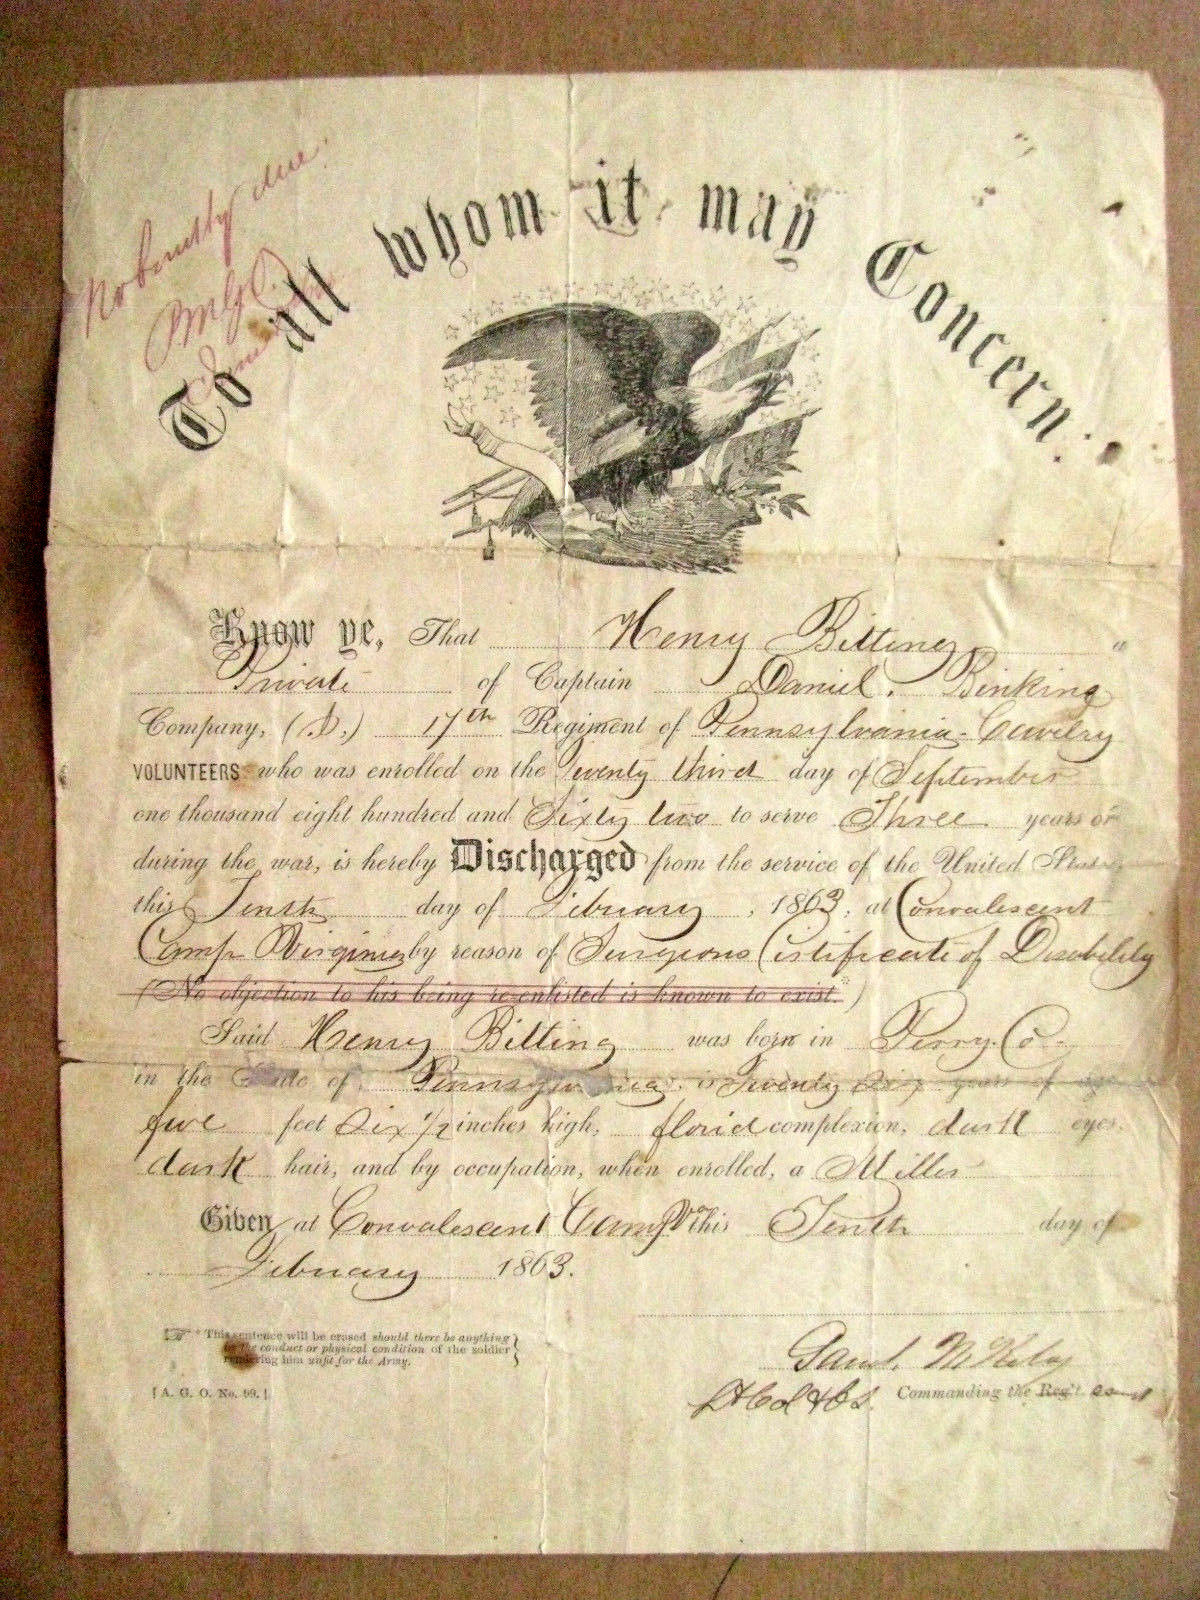 No bounty due.
To all whom it may Concern:
Know ye, That Henry Bitting a
Private of Captain Daniel. Binking
Company, (D.) 17th Regiment of Pennsylvania. Cavelry
VOLUNTEERS who was enrolled on the Twenty third day of September
one thousand eight hundred and Sixty two to serve Three years or
during the war, is hereby Discharged from the service of the United States
this Tenth day of February, 1863, at Convalescent
Camp Virginia by reason of Surgeons Certificate of Disability
(No objection to his being re-enlisted is known to exist.*)
Said Henry Bitting was born in Perry Co.
in the State of Pennsylvania, is Twenty Six years of age
five feet Six 1/2 inches high, florid complexion, dark eyes,
dark hair, and by occupation, when enrolled, a Miller
Given at Convalescent Camp Va this Tenth day of
February 1863.
☞ * This sentence will be erased should there be anything
in the conduct or physical condition of the soldier
rendering him unfit for the Army.
[A. G. O. No. 99.]
Saml. McKelvy
Lt Col & C.S. Commanding the Reg't